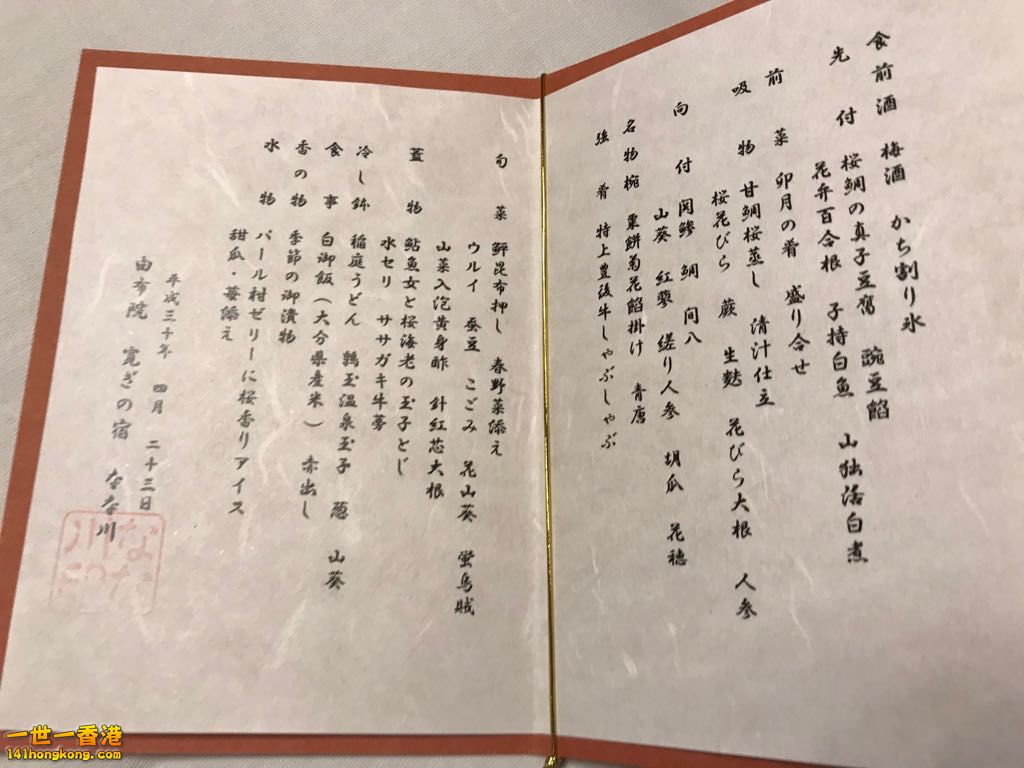 食前酒 梅酒 かち割り氷
先付 桜鯛の真子豆腐 豌豆餡
花弁百合根 子持白魚 山独活白煮
前菜 卯月の肴 盛り合せ
吸物 甘鯛桜蒸し 清汁仕立
桜花びら 蕨 生麩 花びら大根 人参
向付 関鯵 鯛 間八
山葵 紅蓼 縒り人参 胡瓜 花穂
名物椀 粟餅菊花餡掛け 青唐
強肴 特上豊後牛しゃぶしゃぶ
旬菜 鮃昆布押し 春野菜添え
ウルイ 蚕豆 こごみ 花山葵 蛍烏賊
山菜入泡黄身酢 針紅芯大根
蓋物 鮎魚女と桜海老の玉子とじ
水セリ ササガキ牛蒡
冷し鉢 稲庭うどん 鶉玉温泉玉子 葱 山葵
食事 白御飯（大分県産米） 赤出し
香の物 季節の御漬物
水物 パール村ゼリーに桜香りアイス
甜瓜・苺添え
平成三十年 四月 二十三日
由布院 寛ぎの宿 なな川
一世一香港
141hongkong.com